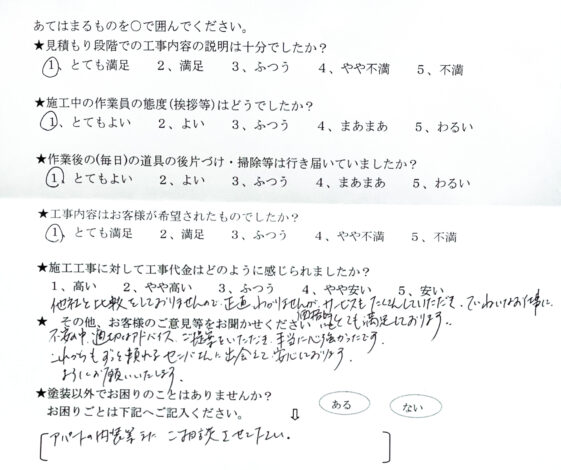 あてはまるものを〇で囲んでください。
★見積もり段階での工事内容の説明は十分でしたか？
1、とても満足　2、満足　3、ふつう　4、やや不満　5、不満
★施工中の作業員の態度(挨拶等)はどうでしたか？
1、とてもよい　2、よい　3、ふつう　4、まあまあ　5、わるい
★作業後の(毎日)の道具の後片づけ・掃除等は行き届いていましたか？
1、とてもよい　2、よい　3、ふつう　4、まあまあ　5、わるい
★工事内容はお客様が希望されたものでしたか？
1、とても満足　2、満足　3、ふつう　4、やや不満　5、不満
★施工工事に対して工事代金はどのように感じられましたか？
1、高い　2、やや高い　3、ふつう　4、やや安い　5、安い
他社と比較をしておりませんので、正直わかりませんが、サービスもたくさんしていただき、ていねいなお仕事に
価格的にもとても満足しております。
★ その他、お客様のご意見等をお聞かせください
不安な中、適切なアドバイス、ご提案をいただき、本当に心強かったです。
これからもずっと頼れるセンバさんに出会えて安心しております。
よろしくお願いいたします。
★塗装以外でお困りのことはありませんか？
お困りごとは下記へご記入ください。　⇩　ある　ない
アパートの内装等また ご相談させて下さい。